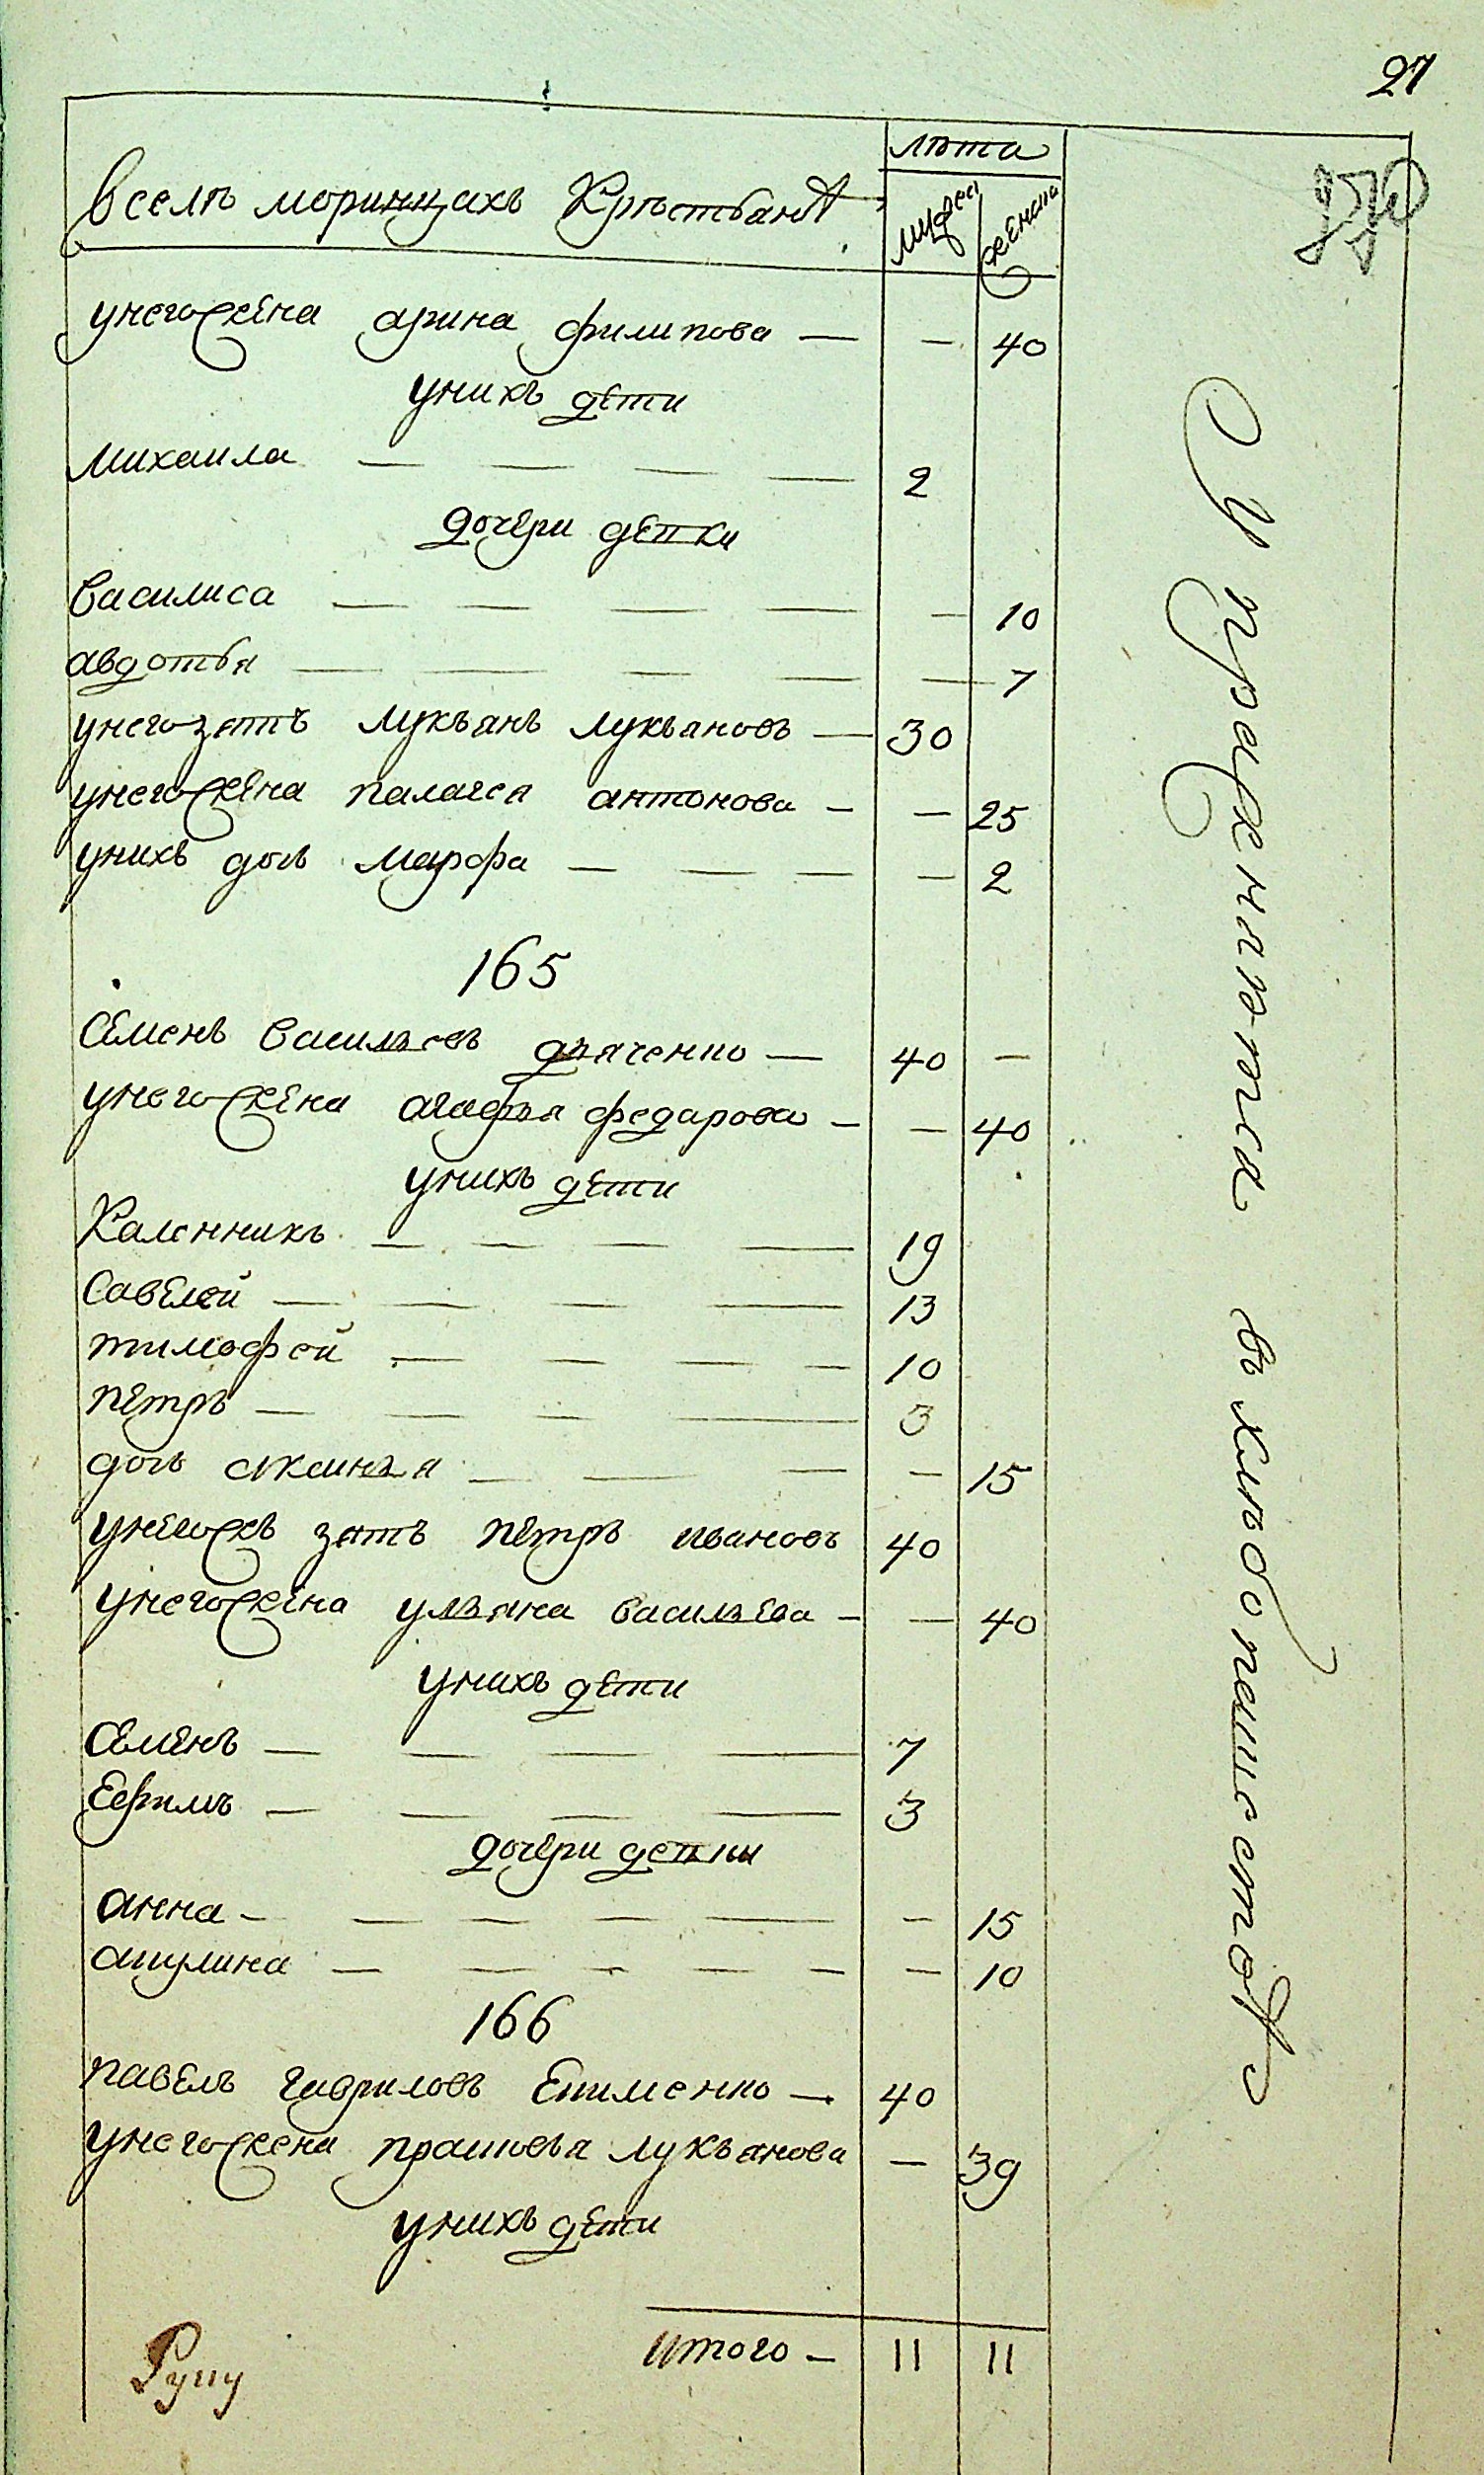 27
лѣта
в селѣ моринцахъ Крѣстьянъ
мужеск женска
у него жена арина филипова — — 40
у нихъ дети
михаила — — — — 2
дочери девки
василиса — — — — — 10
авдотья — — — — — 7
у него зять лукьянъ лукьяновъ — 30
у него жена палагея антонова — — 25
у нихъ дочь марфа — — — — 2
165
семенъ васильевъ дяченко — 40 —
у него жена агафья федарова — — 40
у нихъ дети
Каленникъ — — — — 19
савелей — — — — 13
тимофей — — — — 10
петръ — — — — 3
дочь аксинья — — — — 15
у негожъ зять петръ ивановъ 40
у него жена ульяна васильева — — 40
у нихъ дети
семенъ — — — — 7
Ефимъ — — — — 3
дочери девки
анна — — — — — — 15
акулина — — — — — — 10
166
павелъ гавриловъ Ефименко — 40
у него жена прасковья лукьянова — 39
у нихъ дети
итого — 11 11
Руку
Упражнаютса въ хлѣбопашествѣ